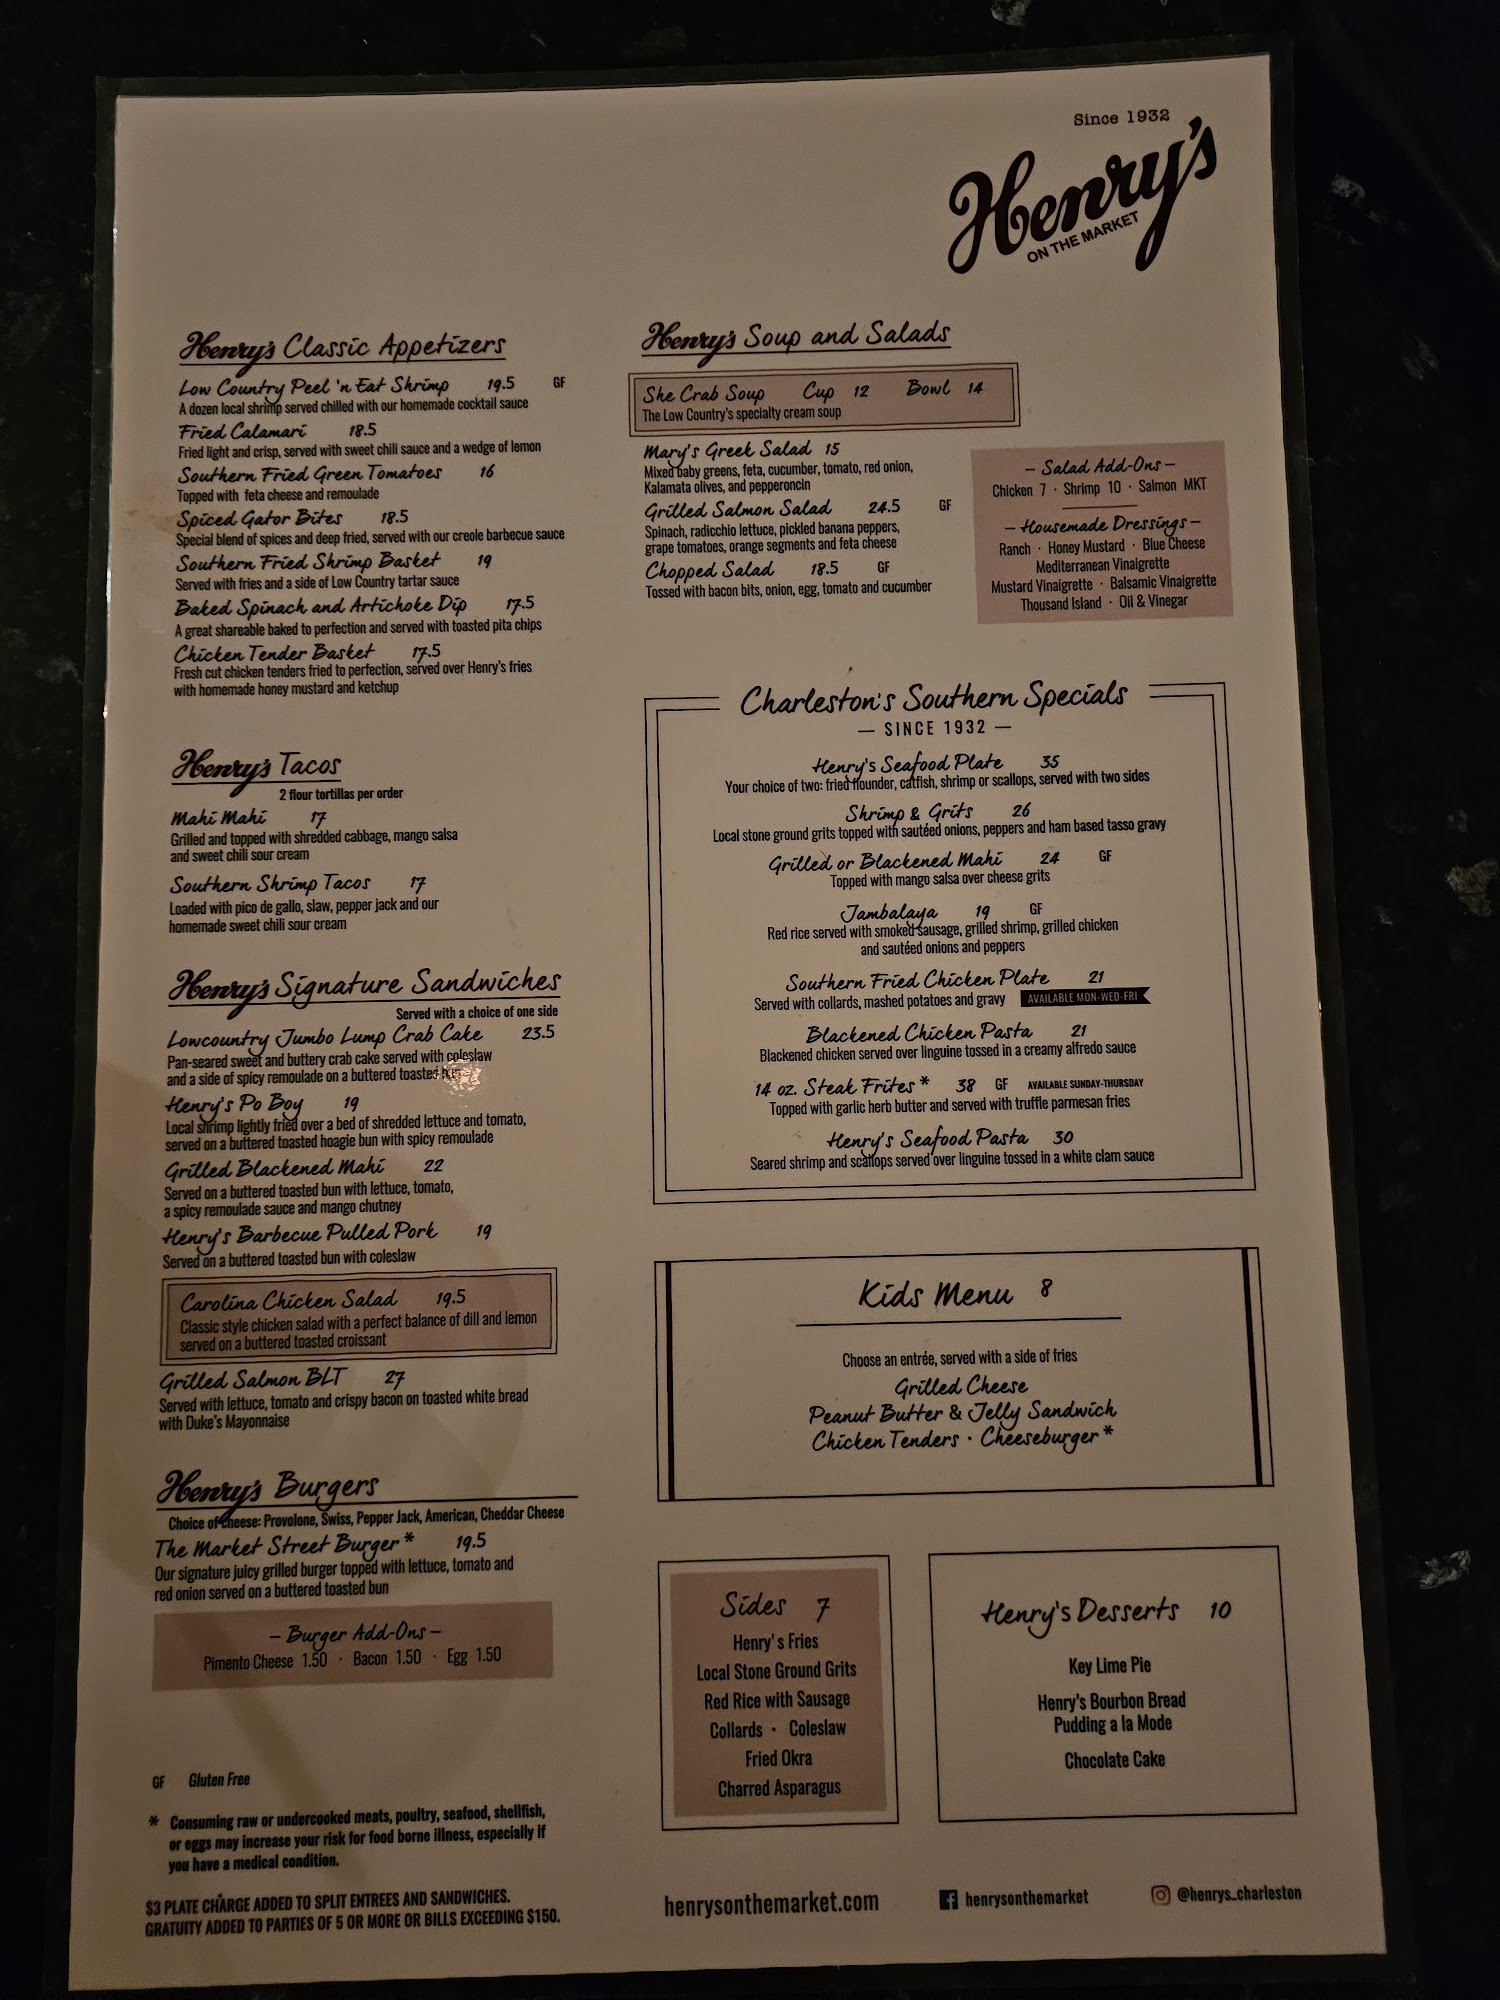 Since 1932
Henry's
ON THE MARKET
Henry's Classic Appetizers
Low Country Peel 'n Eat Shrimp 19.5 GF
A dozen local shrimp served chilled with our homemade cocktail sauce
Fried Calamari 18.5
Fried light and crisp, served with sweet chili sauce and a wedge of lemon
Southern Fried Green Tomatoes 16
Topped with feta cheese and remoulade
Spiced Gator Bites 18.5
Special blend of spices and deep fried, served with our creole barbecue sauce
Southern Fried Shrimp Basket 19
Served with fries and a side of Low Country tartar sauce
Baked Spinach and Artichoke Dip 17.5
A great shareable baked to perfection and served with toasted pita chips
Chicken Tender Basket 17.5
Fresh cut chicken tenders fried to perfection, served over Henry's fries
with homemade honey mustard and ketchup
Henry's Tacos
2 flour tortillas per order
Mahi Mahi 17
Grilled and topped with shredded cabbage, mango salsa
and sweet chili sour cream
Southern Shrimp Tacos 17
Loaded with pico de gallo, slaw, pepper jack and our
homemade sweet chili sour cream
Henry's Signature Sandwiches
Served with a choice of one side
Lowcountry Jumbo Lump Crab Cake 23.5
Pan-seared sweet and buttery crab cake served with coleslaw
and a side of spicy remoulade on a buttered toasted bun
Henry's Po Boy 19
Local shrimp lightly fried over a bed of shredded lettuce and tomato,
served on a buttered toasted hoagie bun with spicy remoulade
Grilled Blackened Mahi 22
Served on a buttered toasted bun with lettuce, tomato,
a spicy remoulade sauce and mango chutney
Henry's Barbecue Pulled Pork 19
Served on a buttered toasted bun with coleslaw
Carolina Chicken Salad 19.5
Classic style chicken salad with a perfect balance of dill and lemon
served on a buttered toasted croissant
Grilled Salmon BLT 27
Served with lettuce, tomato and crispy bacon on toasted white bread
with Duke's Mayonnaise
Henry's Burgers
Choice of cheese: Provolone, Swiss, Pepper Jack, American, Cheddar Cheese
The Market Street Burger * 19.5
Our signature juicy grilled burger topped with lettuce, tomato and
red onion served on a buttered toasted bun
– Burger Add-Ons –
Pimento Cheese 1.50 · Bacon 1.50 · Egg 1.50
GF Gluten Free
* Consuming raw or undercooked meats, poultry, seafood, shellfish,
or eggs may increase your risk for food borne illness, especially if
you have a medical condition.
$3 PLATE CHARGE ADDED TO SPLIT ENTREES AND SANDWICHES.
GRATUITY ADDED TO PARTIES OF 5 OR MORE OR BILLS EXCEEDING $150.
Henry's Soup and Salads
She Crab Soup Cup 12 Bowl 14
The Low Country's specialty cream soup
Mary's Greek Salad 15
Mixed baby greens, feta, cucumber, tomato, red onion,
Kalamata olives, and pepperoncin
Grilled Salmon Salad 24.5 GF
Spinach, radicchio lettuce, pickled banana peppers,
grape tomatoes, orange segments and feta cheese
Chopped Salad 18.5 GF
Tossed with bacon bits, onion, egg, tomato and cucumber
– Salad Add-Ons –
Chicken 7 · Shrimp 10 · Salmon MKT
– Housemade Dressings –
Ranch · Honey Mustard · Blue Cheese
Mediterranean Vinaigrette
Mustard Vinaigrette · Balsamic Vinaigrette
Thousand Island · Oil & Vinegar
Charleston's Southern Specials
— SINCE 1932 —
Henry's Seafood Plate 35
Your choice of two: fried flounder, catfish, shrimp or scallops, served with two sides
Shrimp & Grits 26
Local stone ground grits topped with sautéed onions, peppers and ham based tasso gravy
Grilled or Blackened Mahi 24 GF
Topped with mango salsa over cheese grits
Jambalaya 19 GF
Red rice served with smoked sausage, grilled shrimp, grilled chicken
and sautéed onions and peppers
Southern Fried Chicken Plate 21
Served with collards, mashed potatoes and gravy AVAILABLE MON-WED-FRI
Blackened Chicken Pasta 21
Blackened chicken served over linguine tossed in a creamy alfredo sauce
14 oz. Steak Frites * 38 GF AVAILABLE SUNDAY-THURSDAY
Topped with garlic herb butter and served with truffle parmesan fries
Henry's Seafood Pasta 30
Seared shrimp and scallops served over linguine tossed in a white clam sauce
Kids Menu 8
Choose an entrée, served with a side of fries
Grilled Cheese
Peanut Butter & Jelly Sandwich
Chicken Tenders · Cheeseburger *
Sides 7
Henry's Fries
Local Stone Ground Grits
Red Rice with Sausage
Collards · Coleslaw
Fried Okra
Charred Asparagus
Henry's Desserts 10
Key Lime Pie
Henry's Bourbon Bread
Pudding a la Mode
Chocolate Cake
henrysonthemarket.com
henrysonthemarket
@henrys_charleston